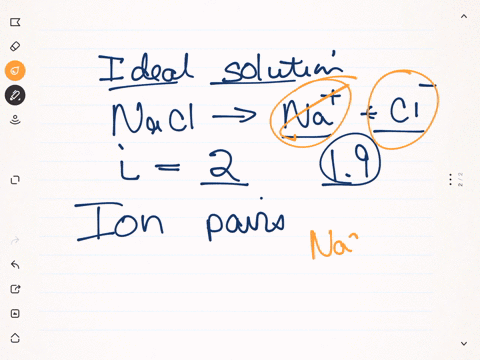 Ideal solution
NaCl → Na⁺ + Cl⁻
i = 2 1.9
Ion pairs
Na
2/2